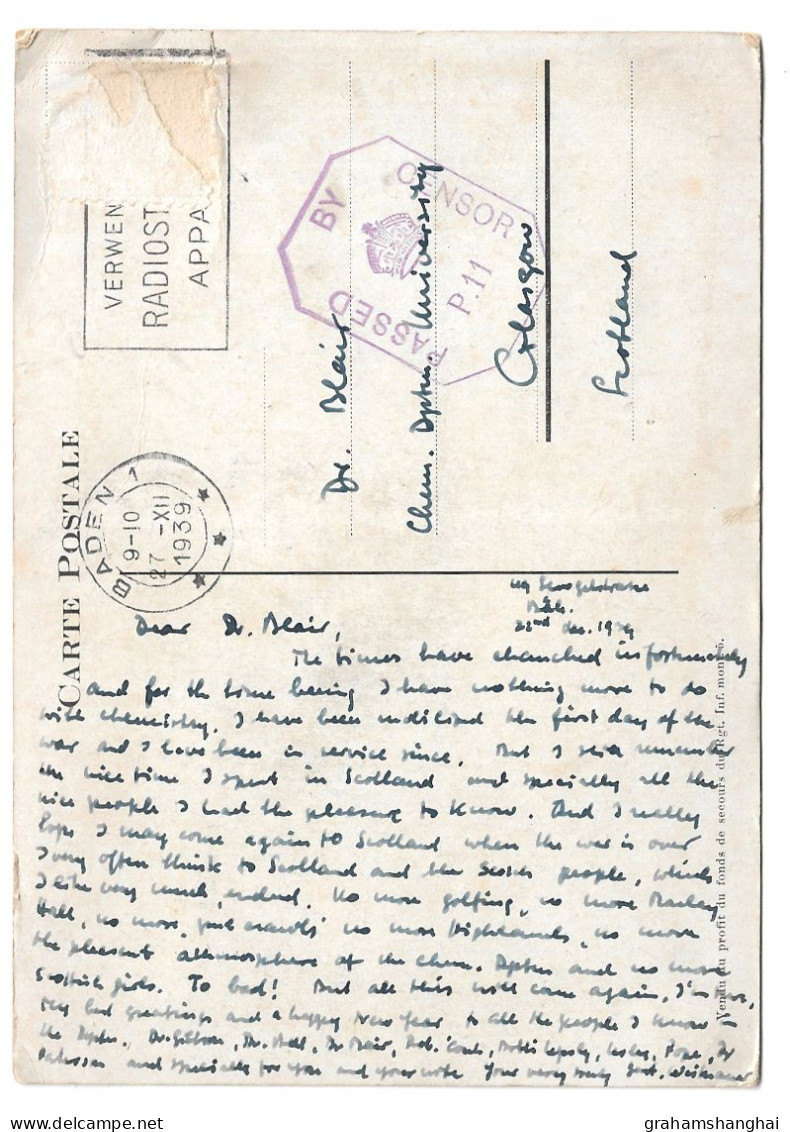 VERWEN
RADIOST
APPA
PASSED BY CENSOR
P.11
CARTE POSTALE
BADEN 1
9-10
27 -XII
1939
Dr. Blair
Chem. Dptm. University
Glasgow
Scotland
22nd dec. 1939
Dear Dr. Blair,
The times have chanched infortunately
and for the time being I have nothing more to do
with chemistry. I have been mobilised the first day of the
war and I have been in service since. But I still remember
the nice time I spent in Scotland and specially all the
nice people I had the pleasure to know. And I really
hope I may come again to Scotland when the war is over
I very often think to Scotland and the Scotch people, which
I like very much, indeed. No more golfing, no more
Hall, no more no more Highlands, no more
the pleasent athmosphere of the Chem. Dptm and no more
Scottish girls. To bad! But all this will come again, I'm sure,
My best greetings and a happy New Year to all the people I know in
the Dptm. Dr. Gibson, Dr. Bell, Dr. Blair, Lesley, Pope, Dr
Paterson and specially for you and your wife Your very truly
Vendu au profit du fonds de secours du Rgt. Inf. mont. 5.
grahamshanghai